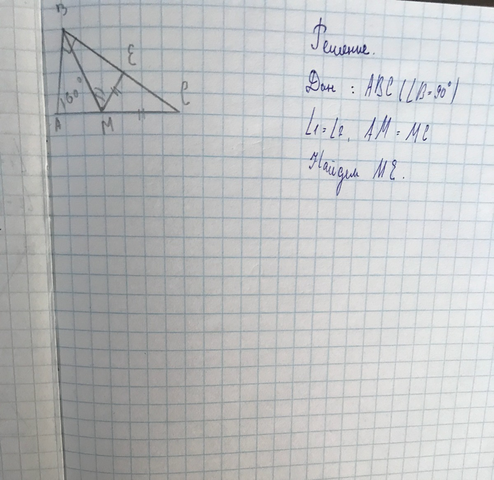 B
E
C
60°
A
M
Решение.
Дан : ABC (∠B=90°)
∠1=∠2, AM=MC
Найдем ME.